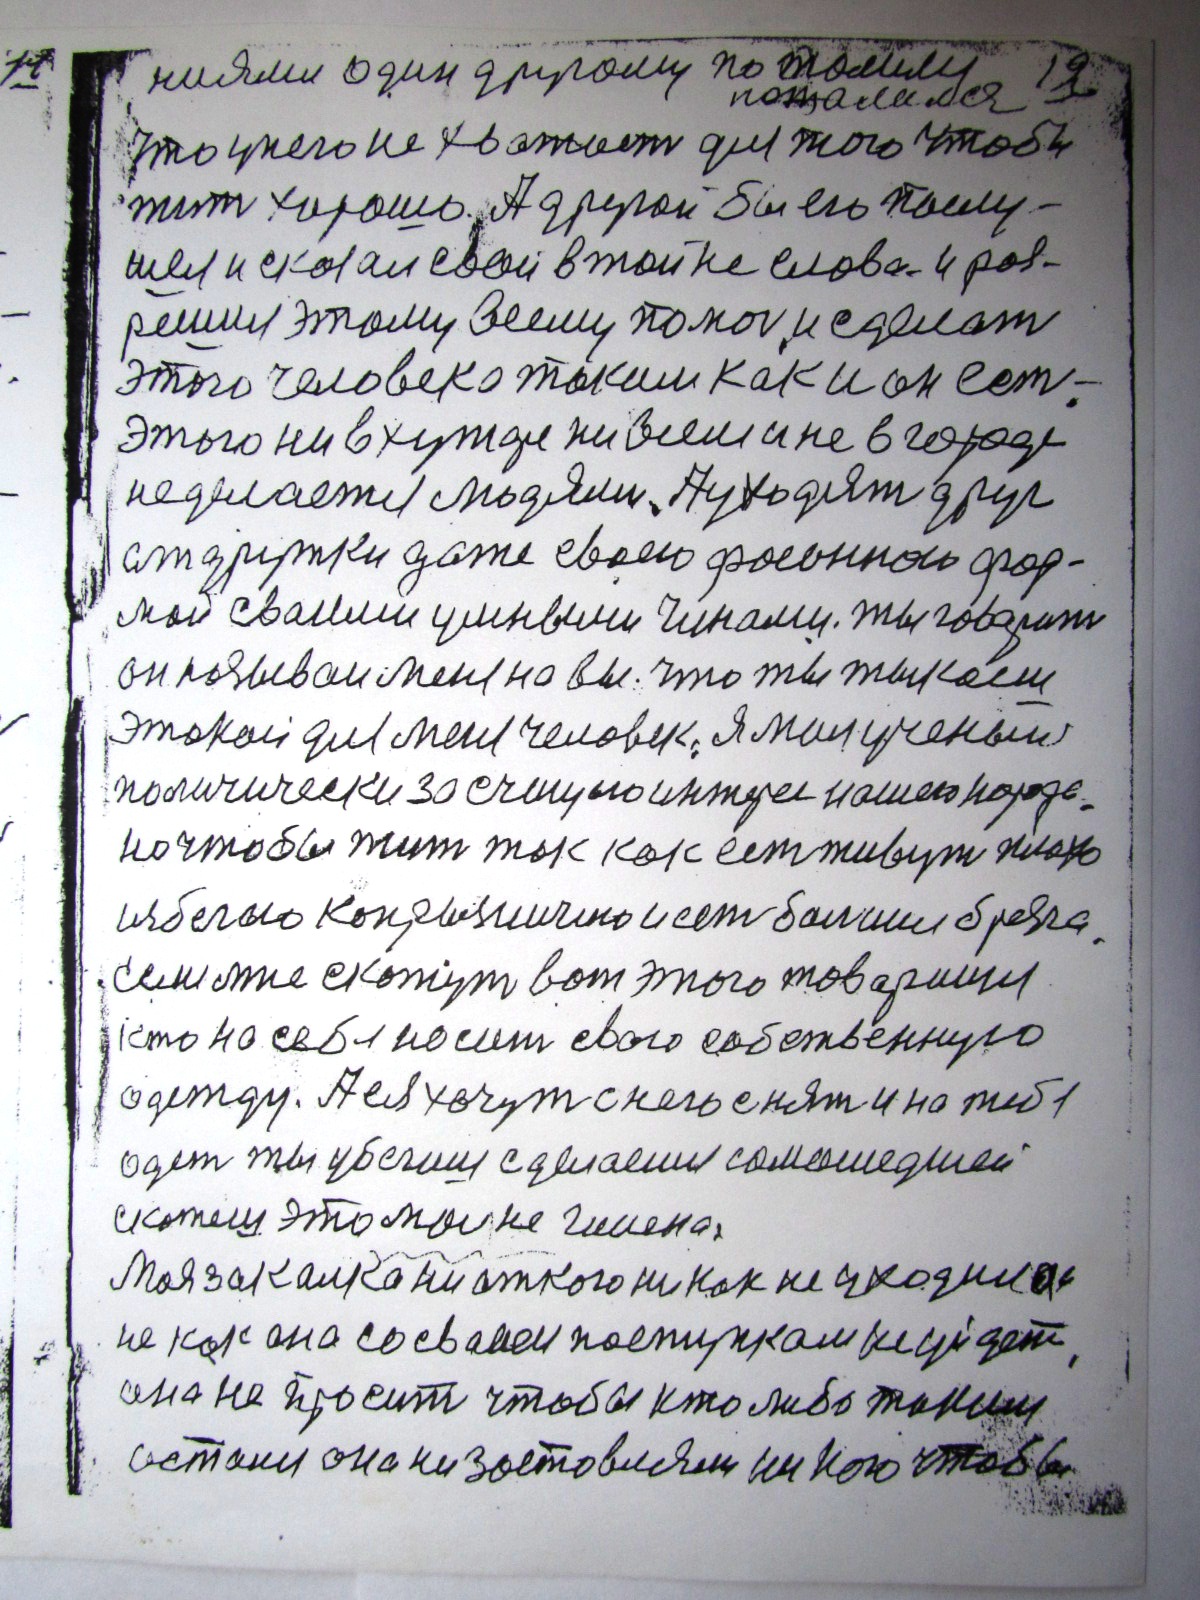 19
ниями один другому
пожалился
что унего не хватает для того чтобы
жит хорошо. А другой бы его послу-
шал и сказал свои в той не слова и раз-
решил этому всему помоч и сделат
этого человека таким как и он ест.-
Этого ни в хутаре ни в селе и не в городе
неделается людями. А уходят друг
от дружки даже своею фасонною фор-
мой сваими умными чинами. ты говарит
он називаи меня на вы. что ты тыкаеш
я такои для меня человек. я мол ученый
политически за счет нашего народа.
но чтобы жит так как ест живут плохо
избегаю и ест
Если мне скажут вот этого товарища
кто на себя носит свою собственную
одежду. А ея хочут с него снят и на тебя
одет ты убегиш сделаешся сомошедшей
скажеш это мои не
Моя закалка ни откого ни как не уходила
не как она со сваеи поступкам не уйдет,
она не просит чтобы кто либо таким
остался она ни заставляли ни кого чтобы